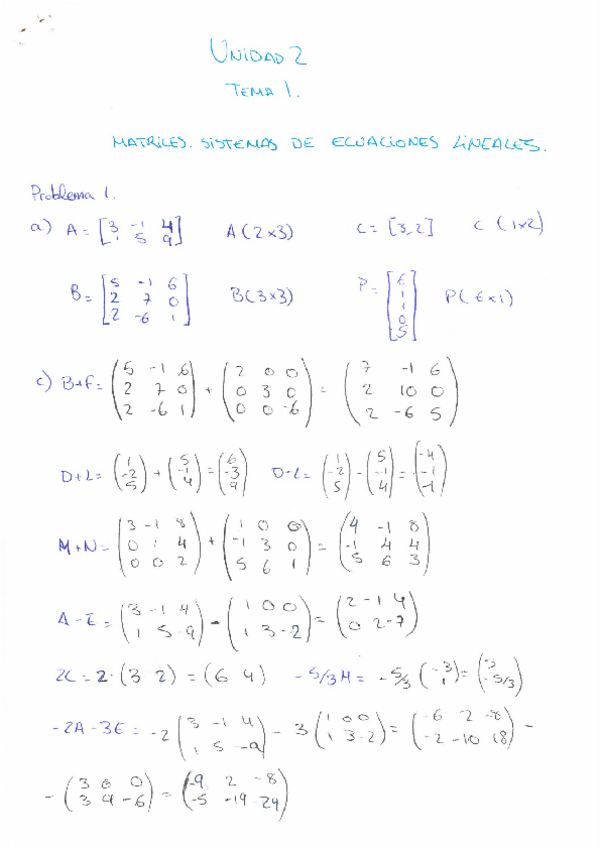 UNIDAD 2
TEMA 1.
MATRICES. SISTEMAS DE ECUACIONES LINEALES.
Problema 1.
a) A = [3 -1 4 / 1 5 9] A(2x3) C = [3,2] C (1x2)
B = [5 -1 6 / 2 7 0 / 2 -6 1] B(3x3) P = [6 / 1 / 1 / 0 / 5] P(6x1)
c) B+F = (5 -1 6 / 2 7 0 / 2 -6 1) + (2 0 0 / 0 3 0 / 0 0 -6) = (7 -1 6 / 2 10 0 / 2 -6 5)
D+L = (1 / -2 / 5) + (5 / -1 / 4) = (6 / -3 / 9) D-L = (1 / -2 / 5) - (5 / -1 / 4) = (-4 / -1 / -1)
M+N = (3 -1 8 / 0 1 4 / 0 0 2) + (1 0 0 / -1 3 0 / 5 6 1) = (4 -1 8 / -1 4 4 / 5 6 3)
A-E = (3 -1 4 / 1 5 -9) - (1 0 0 / 1 3 -2) = (2 -1 4 / 0 2 -7)
2C = 2·(3 2) = (6 4) -5/3 M = -5/3 (-3 / 1) = (5 / -5/3)
-2A-3E = -2 (3 -1 4 / 1 5 -9) - 3 (1 0 0 / 1 3 -2) = (-6 2 -8 / -2 -10 18) -
- (3 0 0 / 3 9 -6) = (-9 2 -8 / -5 -19 24)